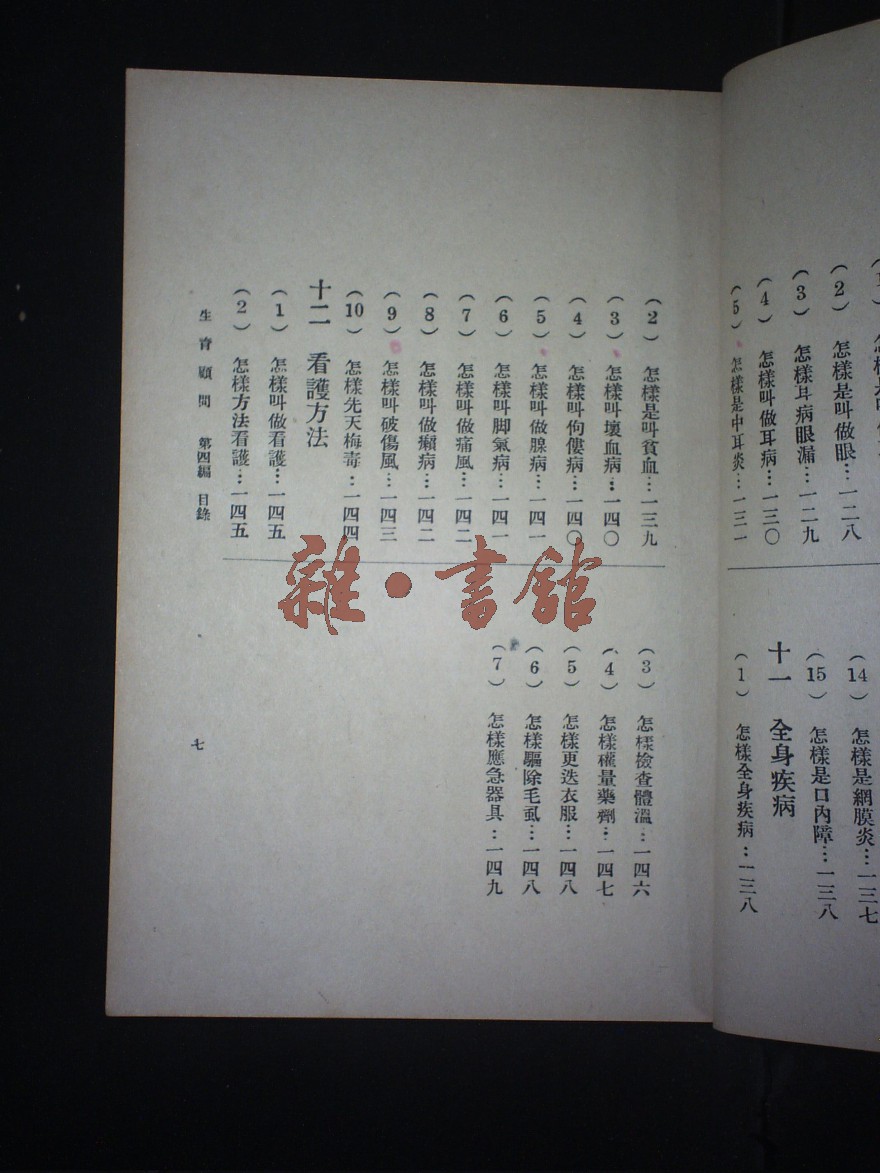 (2) 怎樣是叫做眼…一二八
(3) 怎樣耳病眼漏…一二九
(4) 怎樣叫做耳病…一三〇
(5) 怎樣是中耳炎…一三一
(14) 怎樣是網膜炎…一三七
(15) 怎樣是口內障…一三八
十一 全身疾病
(1) 怎樣全身疾病…一三八
(2) 怎樣是叫貧血…一三九
(3) 怎樣叫壞血病…一四〇
(4) 怎樣叫佝僂病…一四〇
(5) 怎樣叫做腺病…一四一
(6) 怎樣叫脚氣病…一四一
(7) 怎樣叫做痛風…一四二
(8) 怎樣叫做癩病…一四二
(9) 怎樣叫破傷風…一四三
(10) 怎樣先天梅毒…一四四
十二 看護方法
(1) 怎樣叫做看護…一四五
(2) 怎樣方法看護…一四五
(3) 怎樣檢查體溫…一四六
(4) 怎樣確量藥劑…一四七
(5) 怎樣更迭衣服…一四八
(6) 怎樣驅除毛虱…一四八
(7) 怎樣應急器具…一四九
生育顧問 第四編 目錄
七
雜·書館